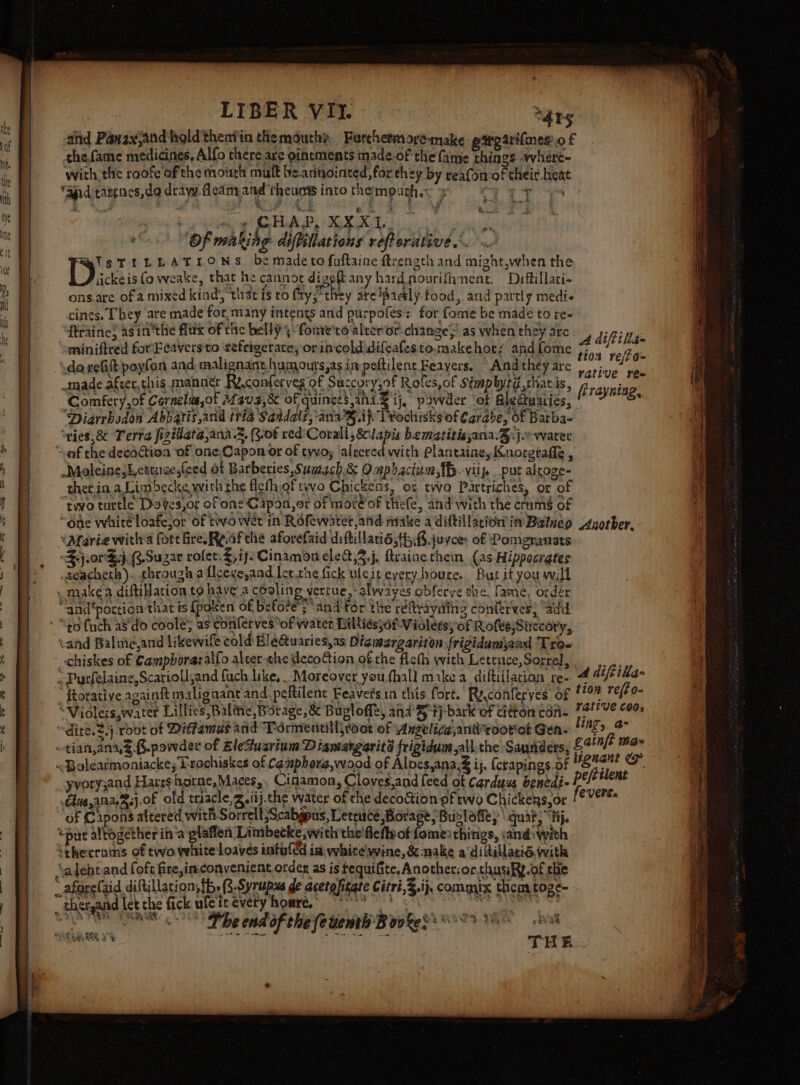 LIBER VII. 415
and Panaxe, and hold them in the mouth. Furthermore make gargarismes of
the same medicines. Also there are ointments made of the same things wherewith
the roofe of the mouth must be annointed, for they by reason of their heat
and tartnes, do draw fleam and rheums into the mouth.
CHAP. XXXI.
Of making distillations restorative.
DISTILLATIONS be made to sustaine strength and might, when the
sicke is so weake, that he cannot digest any hard nourishment. Distillations
are of a mixed kind, that is to say, they are partly food, and partly medicines.
They are made for many intents and purposes: for some be made to restraine,
as in the flux of the belly; some to alter or change, as when they are
ministred for Feavers to refrigerate, or in cold diseases to make hot: and some
do resist poyson and malignant humours, as in pestilent Feavers. And they are
made after this manner ℞. conserves of Succory, of Roses, of Simphytū, that is,
Comfery, of Cornelus, of Mava, &c of quinces, ana ℥ ij. powder of Electuaries,
Diarrhodon Abbatis, and tria Sandali, ana ℥.ij. Trochisks of Carabe, of Barbaries,
& Terra sigillata, ana.ʒ, ß. of red Corall, & Lapis hematitis, ana.℥.j. water
of the decoction of one Capon or of two, altered with Plantaine, Knotgrasse,
Moleine, Lettuce, seed of Barberies, Sumach, & Omphacium, ℔. viij. put altogether
in a Limbecke with the flesh of two Chickens, or two Partriches, or of
two turtle Doves, or of one Capon, or of more of these, and with the crums of
one white loafe, or of two wet in Rosewater, and make a distillation in Balneo
Marie with a soft fire. ℞. of the aforesaid distillatiō, ℔. ß. juyce of Pomgranats
℥.j. or ℥.j. ß. Sugar roset. ℥, ij. Cinamon elect, ʒ.j. straine them (as Hippocrates
teacheth) through a sleeve, and let the sick use it every houre. But if you will
make a distillation to have a cooling vertue, alwayes observe the, same, order
and portion that is spoken of before; and for the restrayning conserves, add
to such as do coole, as conserves of water Lillies, of Violets, of Roses, Succory,
and Balme, and likewise cold Electuaries, as Diamargariton frigidum, and Trochiskes
of Camphora: also alter the decoction of the flesh with Lettuce, Sorrel,
Purselaine, Scarioll, and such like. Moreover you shall make a distillation restorative
against malignant and pestilent Feavers in this sort. ℞. conserves of
Violets, water Lillies, Balme, Borage, & Buglosse, ana ℥ ij bark of citron condite.
ʒ.j root of Dittamus and Tormentill, root of Angelica, and root of Gentian,
ana, ʒ.ß. powder of Electuarium Diamargaritū frigidum, all the Saunders,
Bolearmoniacke, Trochiskes of Camphora, wood of Aloes, ana, ℥ ij. scrapings of
yvory, and Harts horne, Maces, Cinamon, Cloves, and seed of Carduus benedictus,
ana.ʒ.j. of old triacle, ʒ.iij. the water of the decoction of two Chickens, or
of Capons altered with Sorrell, Scabious, Lettuce, Borage, Buglosse, quar, iij.
put altogether in a glassen Limbecke, with the flesh of some things, and with
the crams of two white loaves infused in white wine, & make a distillatiō with
a lent and soft fire, in convenient order as is requisite. Another: or thus ℞. of the
aforesaid distillation, ℔. ß. Syrupus de acetositate Citri, ℥.ij, commix them together,
and let the sick use it every houre.
The end of the seventh Booke.
THE
A distillation restorative restrayning.
Another.
A distillation restorative cooling, against malignant & pestilent fevers.